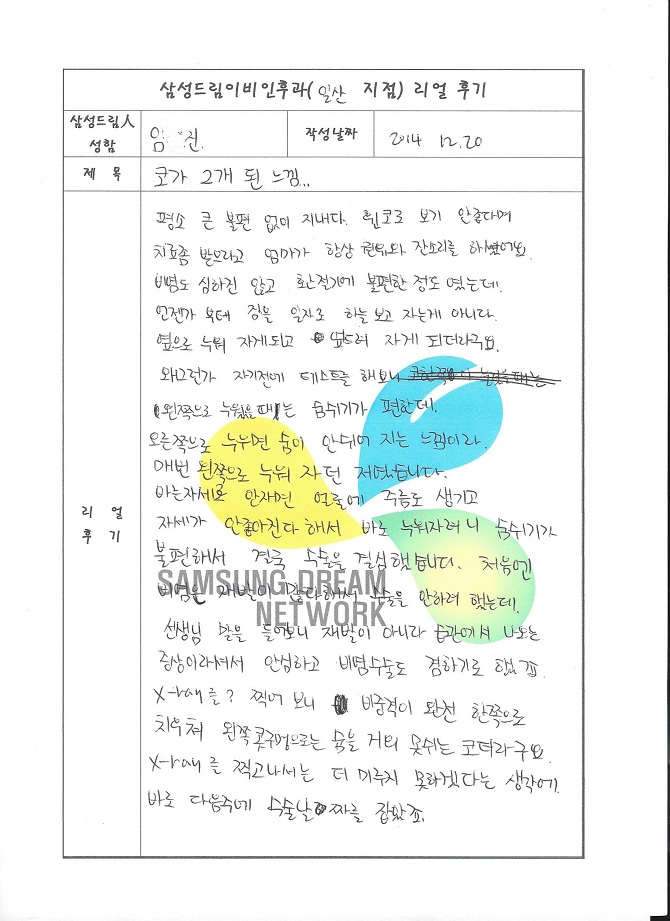 삼성드림이비인후과(일산 지점) 리얼 후기
삼성드림人
성함
임 진.
작성날짜
2014 12.20
제 목
코가 2개 된 느낌..
리 얼
후 기
평소 큰 불편 없이 지내다. 코로 보기 안좋다며
치료좀 받으라고 엄마가 항상 잔소리를 하셨어요.
비염도 심하진 않고 환절기에 불편한 정도 였는데.
언젠가 부테 잠을 일자로 하늘 보고 자는게 아니다.
옆으로 누워 자게되고 엎드려 자게 되더라구요.
왜그런가 자기전에 테스트를 해보니
(왼쪽으로 누웠을때)는 숨쉬기가 편한데.
오른쪽으로 누우면 숨이 안쉬어 지는 느낌이라.
매번 왼쪽으로 누워 자던 저였습니다.
바른자세로 안자면 얼굴에 주름도 생기고
자세가 안좋아진다 해서 바로 누워자려니 숨쉬기가
불편해서 결국 수술을 결심했습니다. 처음엔
비염은 재발이 많다해서 수술을 안하려 했는데.
SAMSUNG DREAM
NETWORK
선생님 말을 들어보니 재발이 아니라 습관에서 나오는
증상이라셔서 안심하고 비염수술도 겸하기로 했죠.
x-ray를? 찍어 보니 비중격이 완전 한쪽으로
치우쳐 왼쪽 콧구멍으로는 숨을 거의 못쉬는 코더라구요.
x-ray를 찍고나서는 더 미루지 못하겠다는 생각에.
바로 다음주에 수술날짜를 잡았죠.